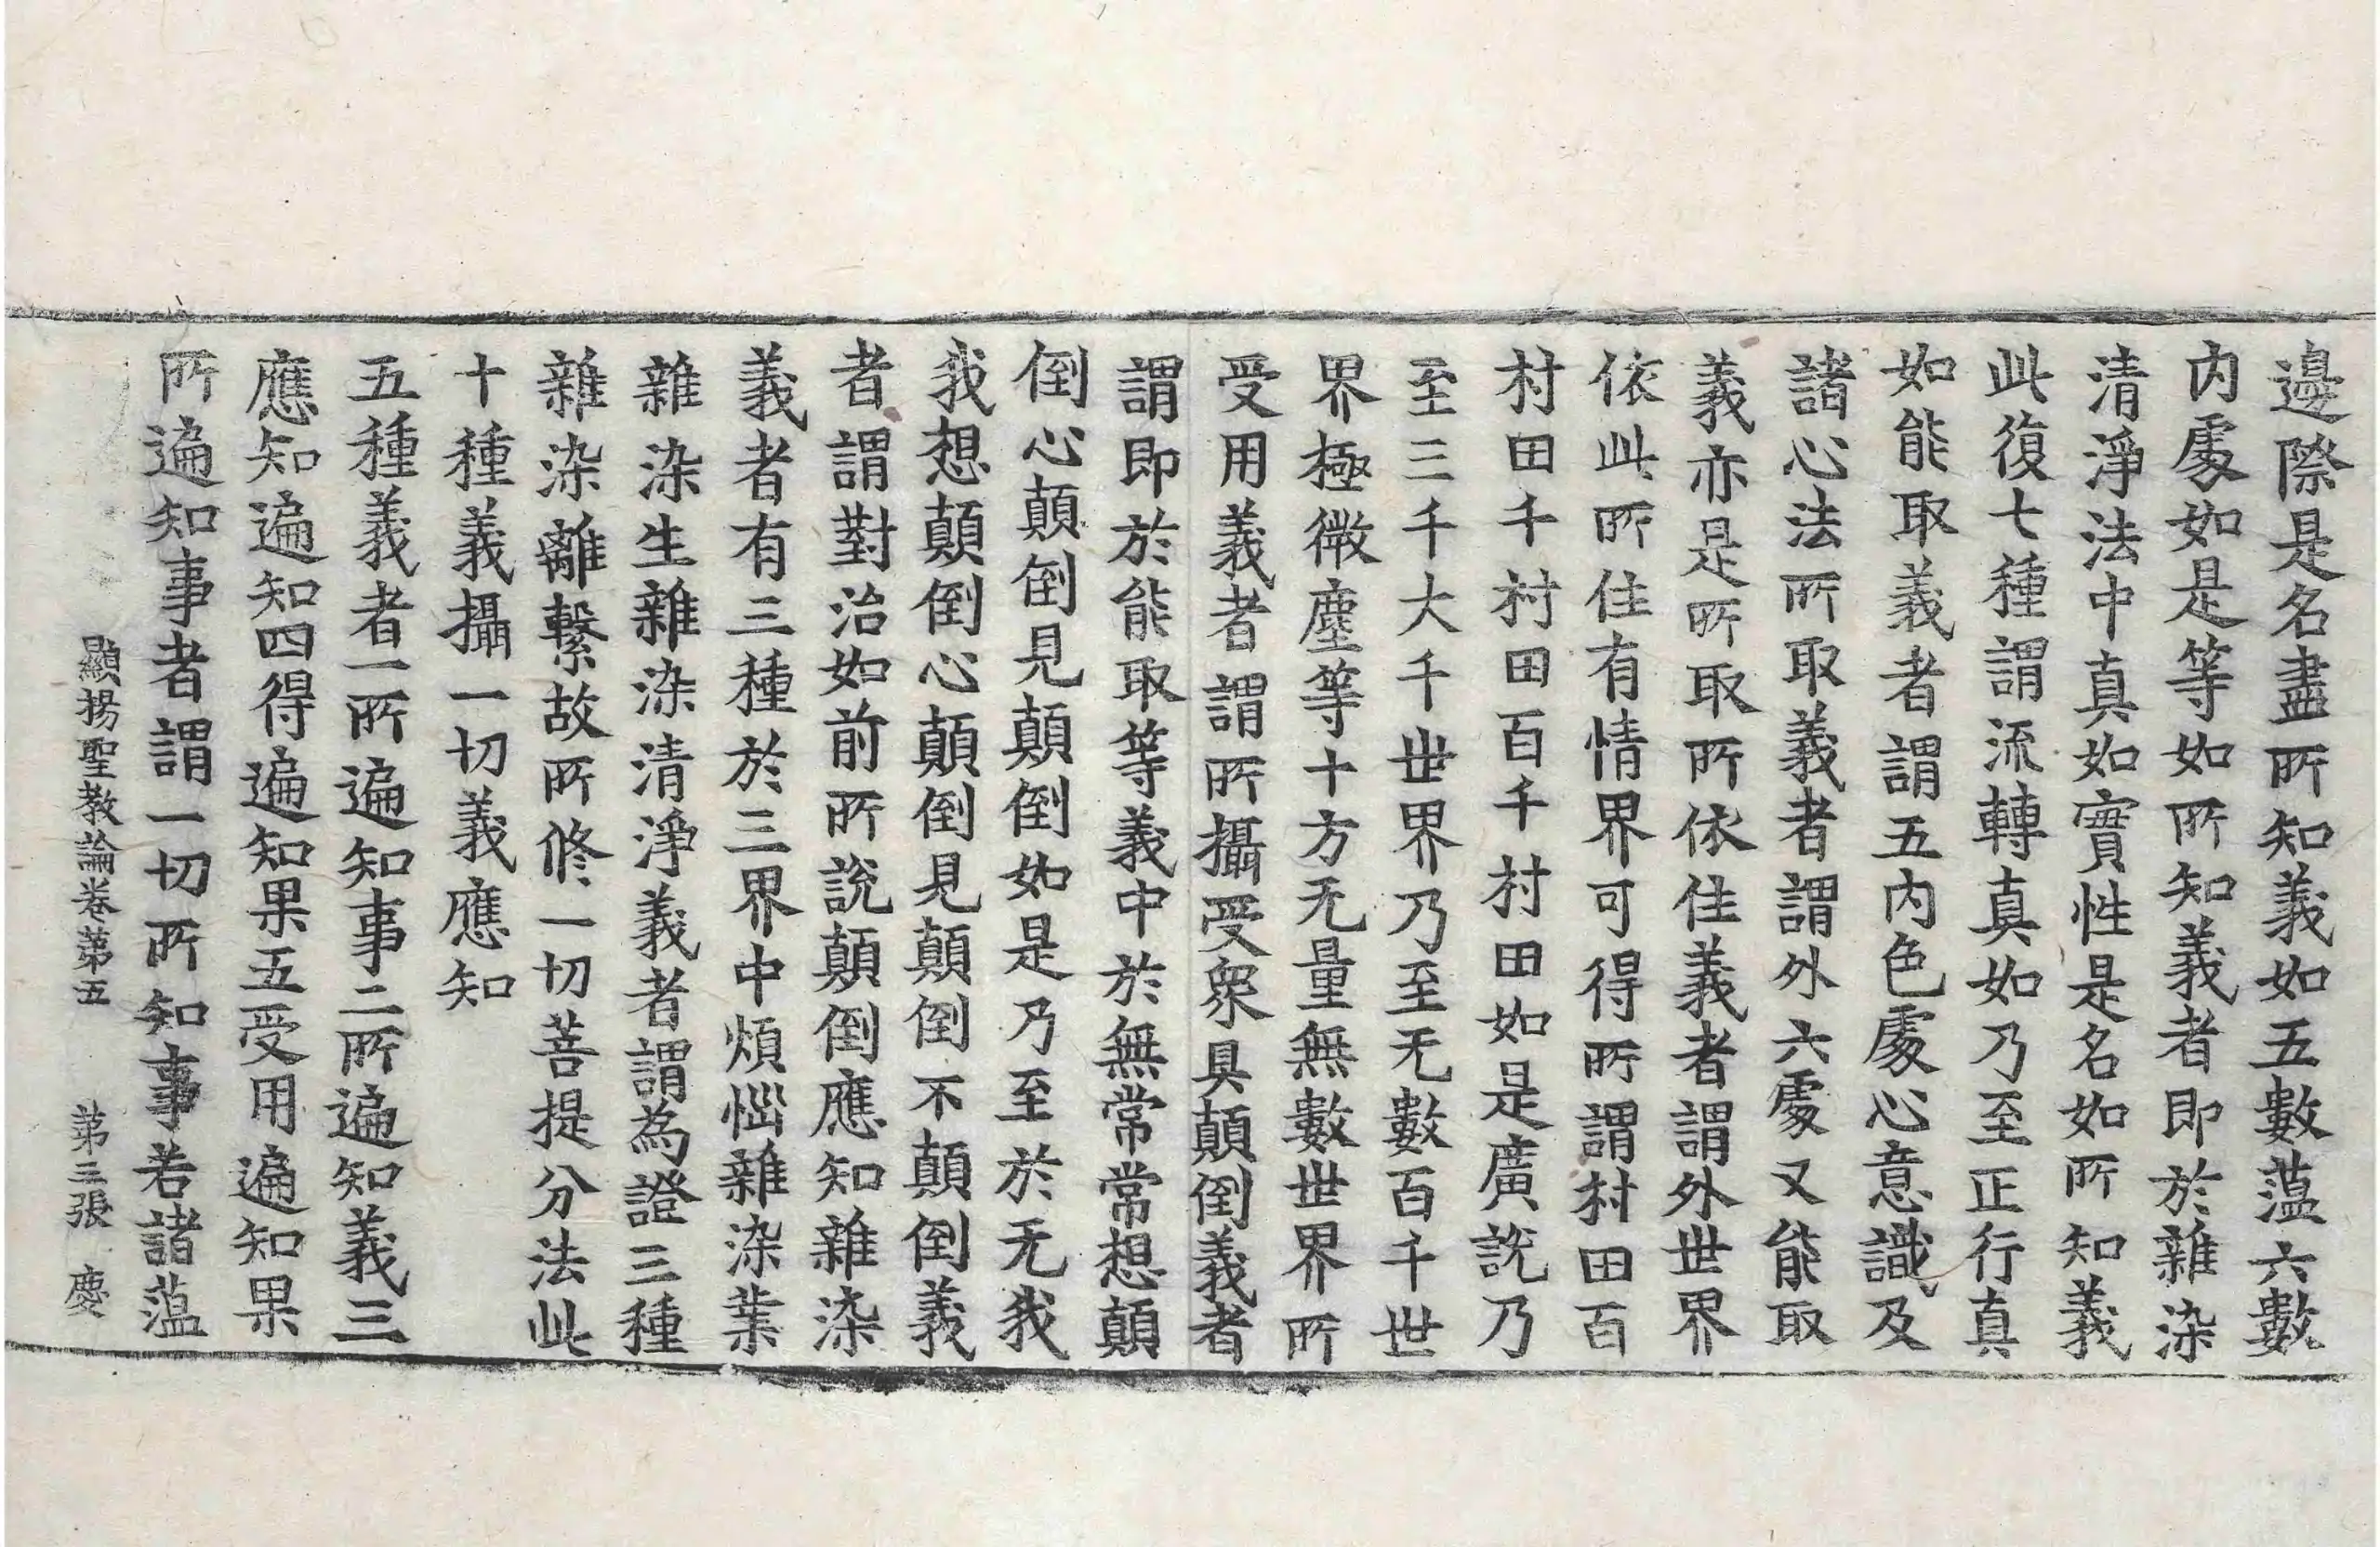 邊際是名盡所知義如五數薀六數
内處如是等如所知義者即於雜染
清淨法中真如實性是名如所知義
此復七種謂流轉真如乃至正行真
如能取義者謂五内色處心意識及
諸心法所取義者謂外六處又能取
義亦是所取所依住義者謂外世界
依此所住有情界可得所謂村田百
村田千村田百千村田如是廣說乃
至三千大千世界乃至无數百千世
界極微塵等十方无量無數世界所
受用義者謂所攝受衆具顛倒義者
謂即於能取等義中於無常常想顛
倒心顛倒見顛倒如是乃至於无我
我想顛倒心顛倒見顛倒不顛倒義
者謂對治如前所說顛倒應知雜染
義者有三種於三界中煩惱雜染業
雜染生雜染清淨義者謂為證三種
雜染離繫故所修一切菩提分法此
十種義攝一切義應知
五種義者一所遍知事二所遍知義三
應知遍知四得遍知果五受用遍知果
所遍知事者謂一切所知事若諸薀
顯揚聖教論卷第五　第三張　慶